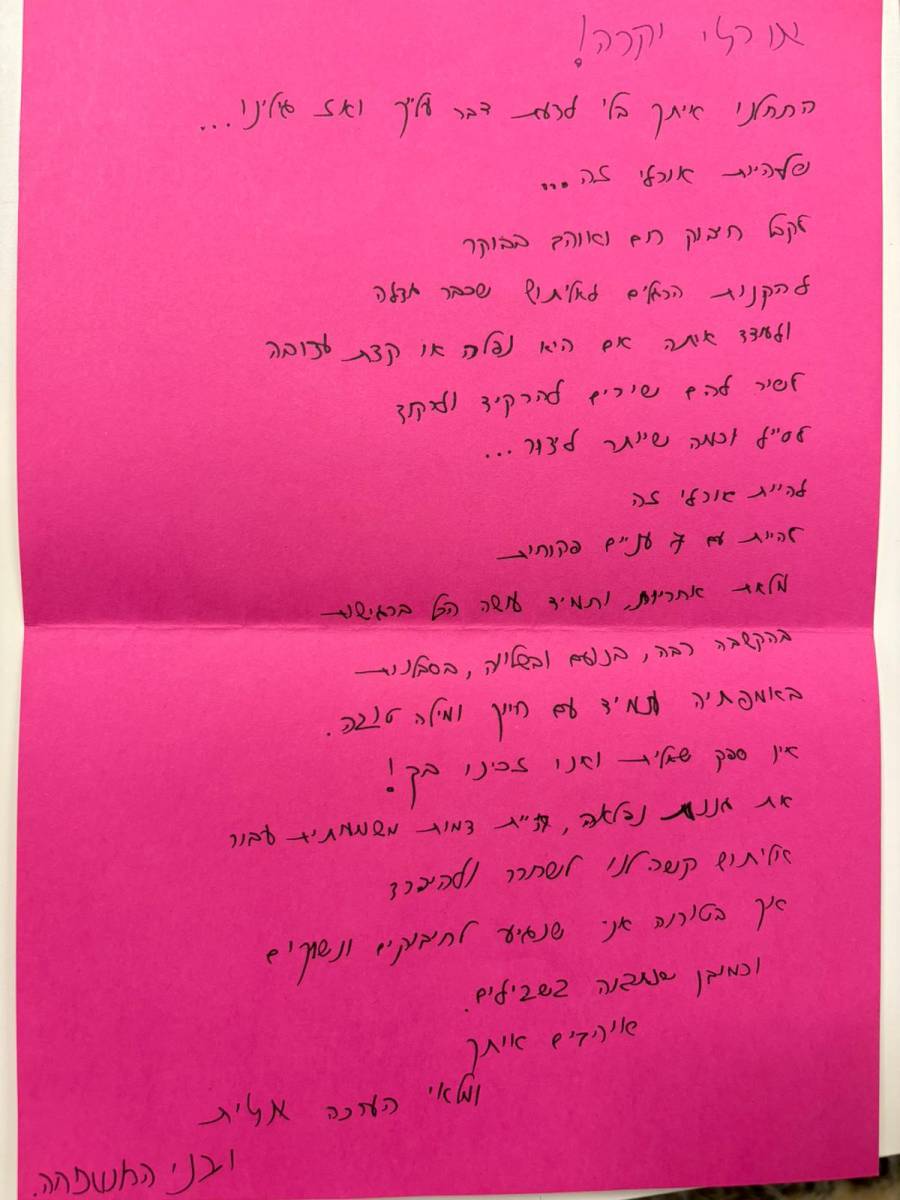 אורלי יקרה!
התחלנו איתך בלי לדעת דבר עליך ואז גילינו...
שלהיות אורלי זה...
לקבל חיבוק חם ואוהב בבוקר
להקנות הרגלים לאליתוש שכבר גדלה
ולעודד איתה אם היא נפלה או קצת עצובה
לשיר להם שירים להרקיד ולרקוד
לטייל וכמה שיותר ליצור...
להיית אורלי זה
להיות עם 7 עניים פקוחות
מלאת אחריות, ותמיד עושה הכל ברגישות
בהקשבה רבה, בנועם ובשלווה, בסבלנות
באמפתיה תמיד עם חיוך ומילה טובה.
אין ספק שאלית ואנו זכינו בך!
את גננת נפלאה, דמות משמעותית עבור
אליתוש קשה לנו לשחרר ולהיפרד
אך בטוחה אני שנגיע לחיבוקים ונשיקים
וכמובן שנתראה בשבילים.
אוהבים אותך
ומלאי הערכה אלית
ובני המשפחה.